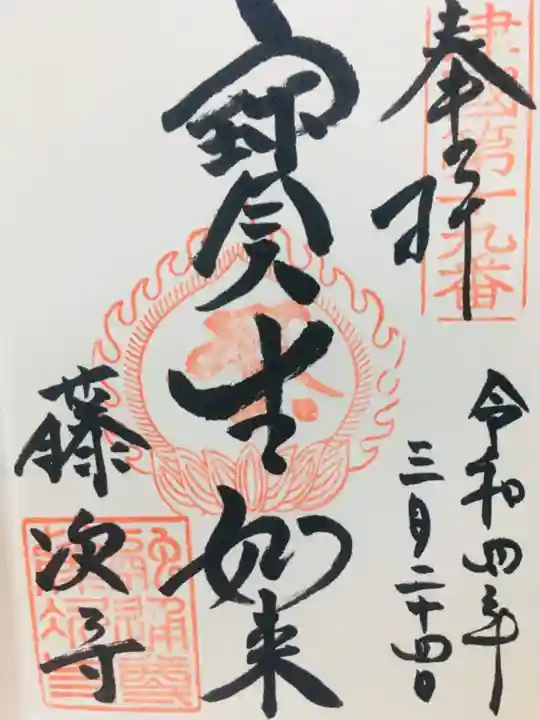 奉拝
第一九番
令和四年
三月二十四日
寳生如来
藤次寺